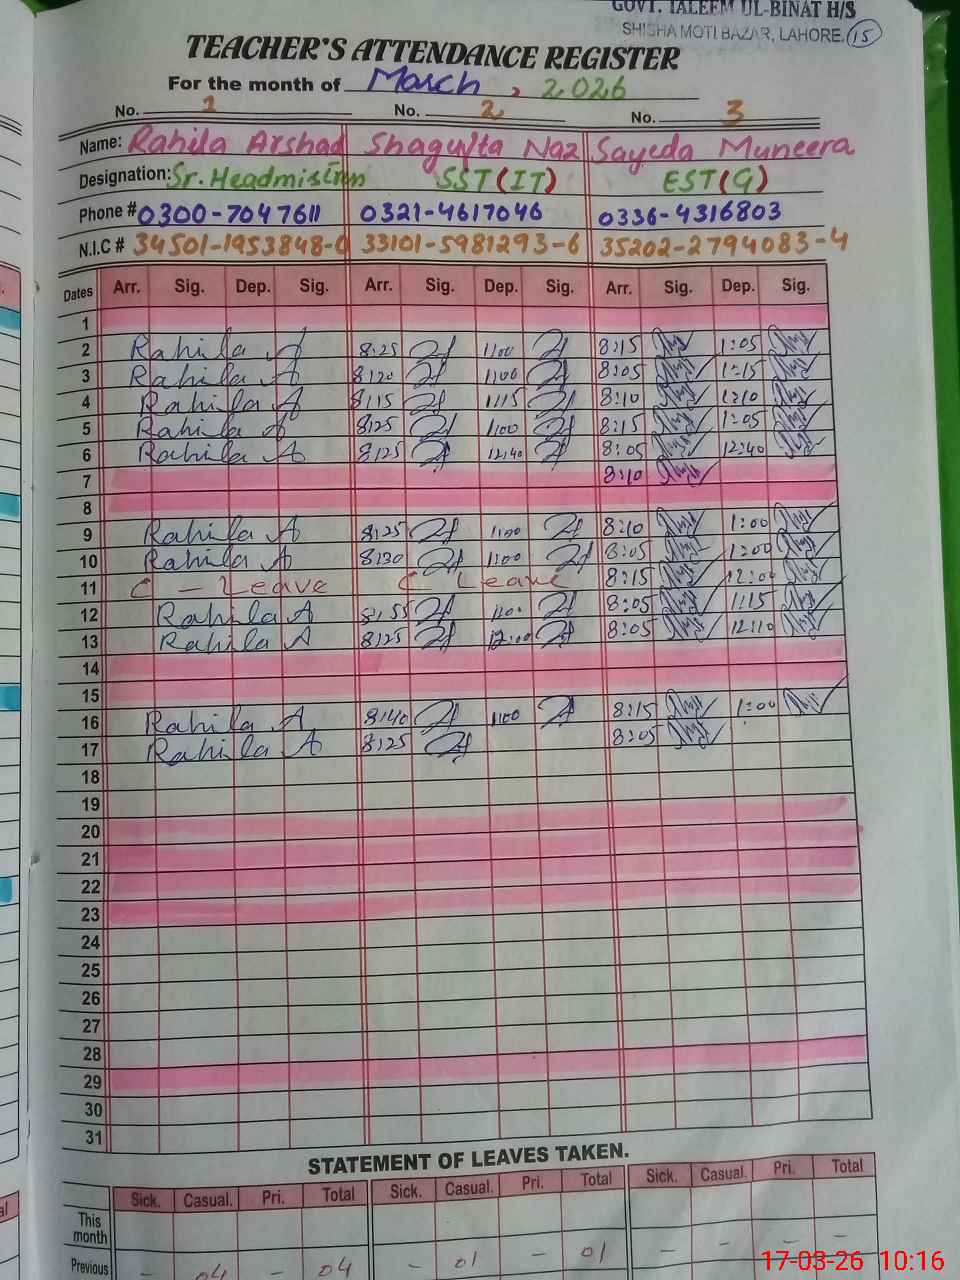 GOVT. TALEEM UL-BINAT H/S
SHISHA MOTI BAZAR, LAHORE. 15
TEACHER'S ATTENDANCE REGISTER
For the month of March, 2026
No. 1 No. 2 No. 3
Name: Rahila Arshad Shagufta Naz Sayeda Muneera
Designation: Sr. Headmistress SST(IT) EST(G)
Phone # 0300-7047611 0321-4617046 0336-4316803
N.I.C # 34501-1953848-0 33101-5981293-6 35202-2794083-4
Dates Arr. Sig. Dep. Sig. Arr. Sig. Dep. Sig. Arr. Sig. Dep. Sig.
1
2 Rahila A 8:25 1:00 8:15 1:05
3 Rahila A 8:20 1:00 8:05 1:15
4 Rahila A 8:15 1:15 8:10 1:10
5 Rahila A 8:25 1:00 8:15 1:05
6 Rahila A 8:25 12:40 8:05 12:40
7 8:10
8
9 Rahila A 8:25 1:00 8:10 1:00
10 Rahila A 8:30 1:00 8:05 1:00
11 C - Leave C Leave 8:15 12:00
12 Rahila A 8:55 1:00 8:05 1:15
13 Rahila A 8:25 12:00 8:05 12:10
14
15
16 Rahila A 8:40 1:00 8:15 1:00
17 Rahila A 8:25 8:05
18
19
20
21
22
23
24
25
26
27
28
29
30
31
STATEMENT OF LEAVES TAKEN.
Sick. Casual. Pri. Total Sick. Casual. Pri. Total Sick. Casual. Pri. Total
This
month
Previous - 04 - 04 - 01 - 01 - - - -
17-03-26 10:16